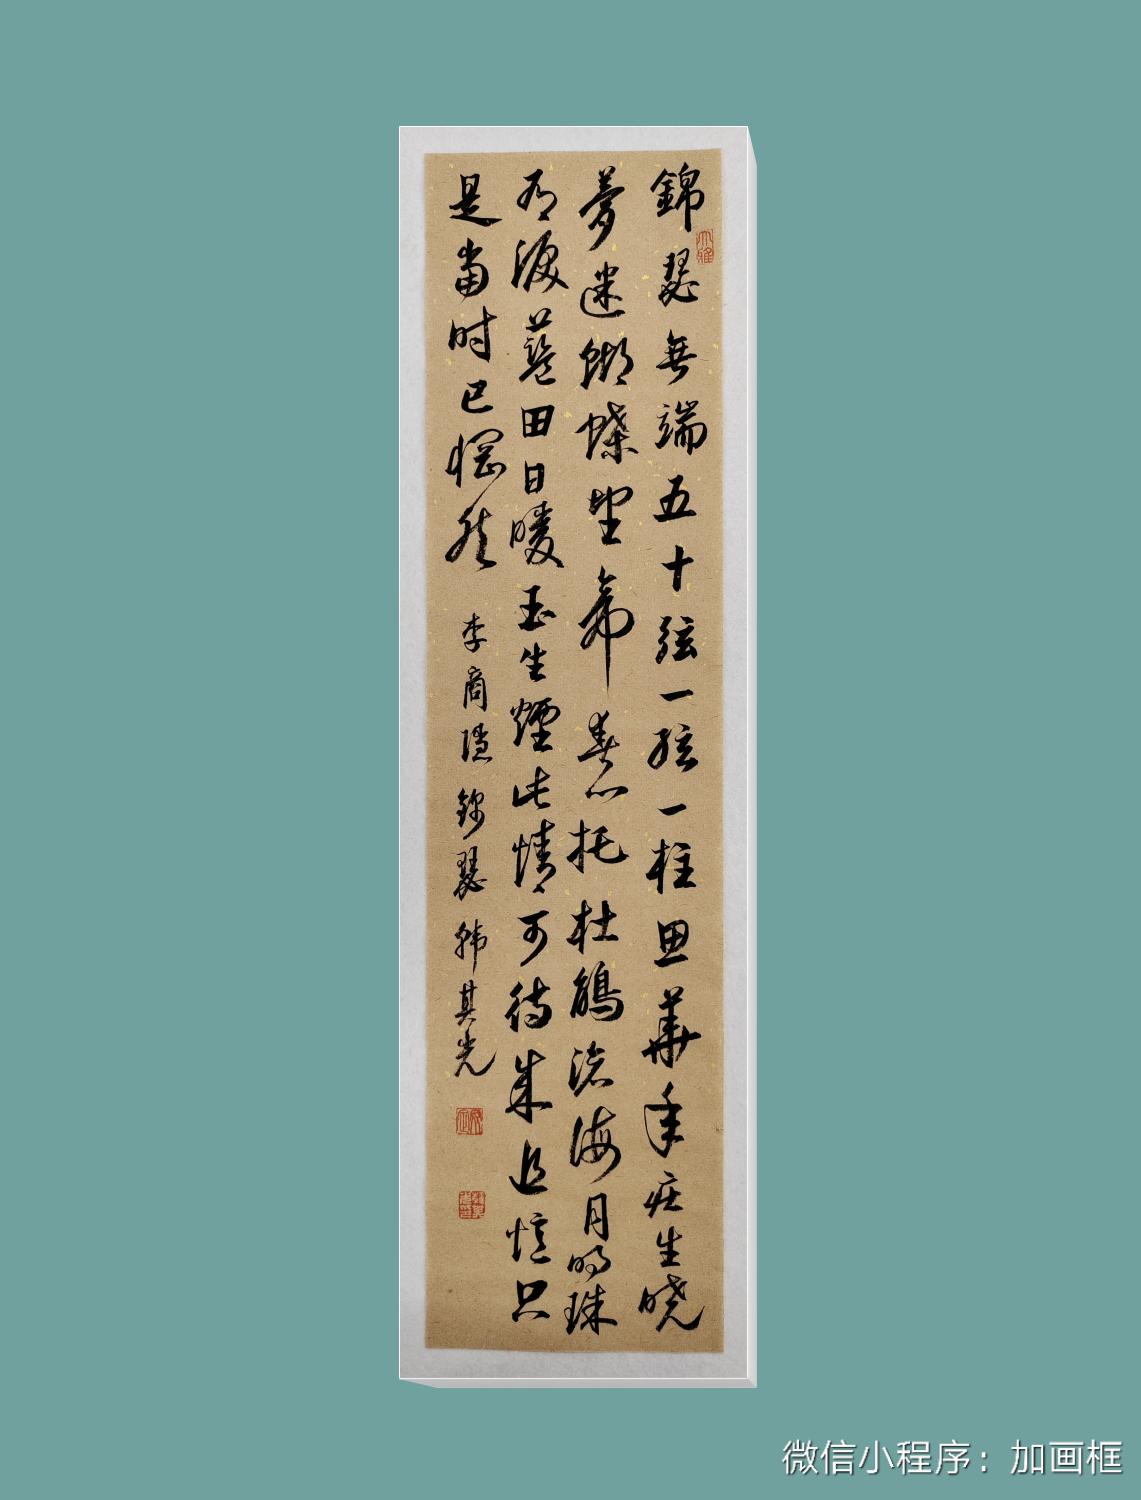 錦瑟無端五十弦一弦一柱思華年庄生晓
夢迷蝴蝶望帝春心托杜鵑滄海月明珠
有淚藍田日暖玉生煙此情可待成追憶只
是當时已惘然
李商隱錦瑟韩其光
大雅
微信小程序：加画框